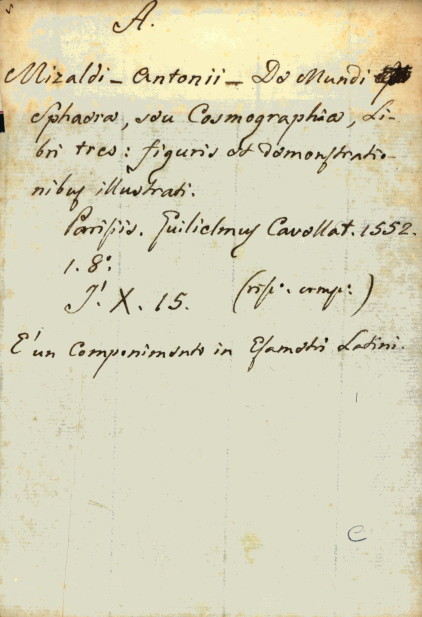 A.
Mizaldi - Antonii - De Mundi
Sphaera, seu Cosmographia, Li-
bri tres: figuris et demonstratio-
nibus illustrati.
Parisiis. Guilielmus Cavellat. 1552.
1. 8.°
X. 15.
E' un Componimento in Esametri Latini.
C